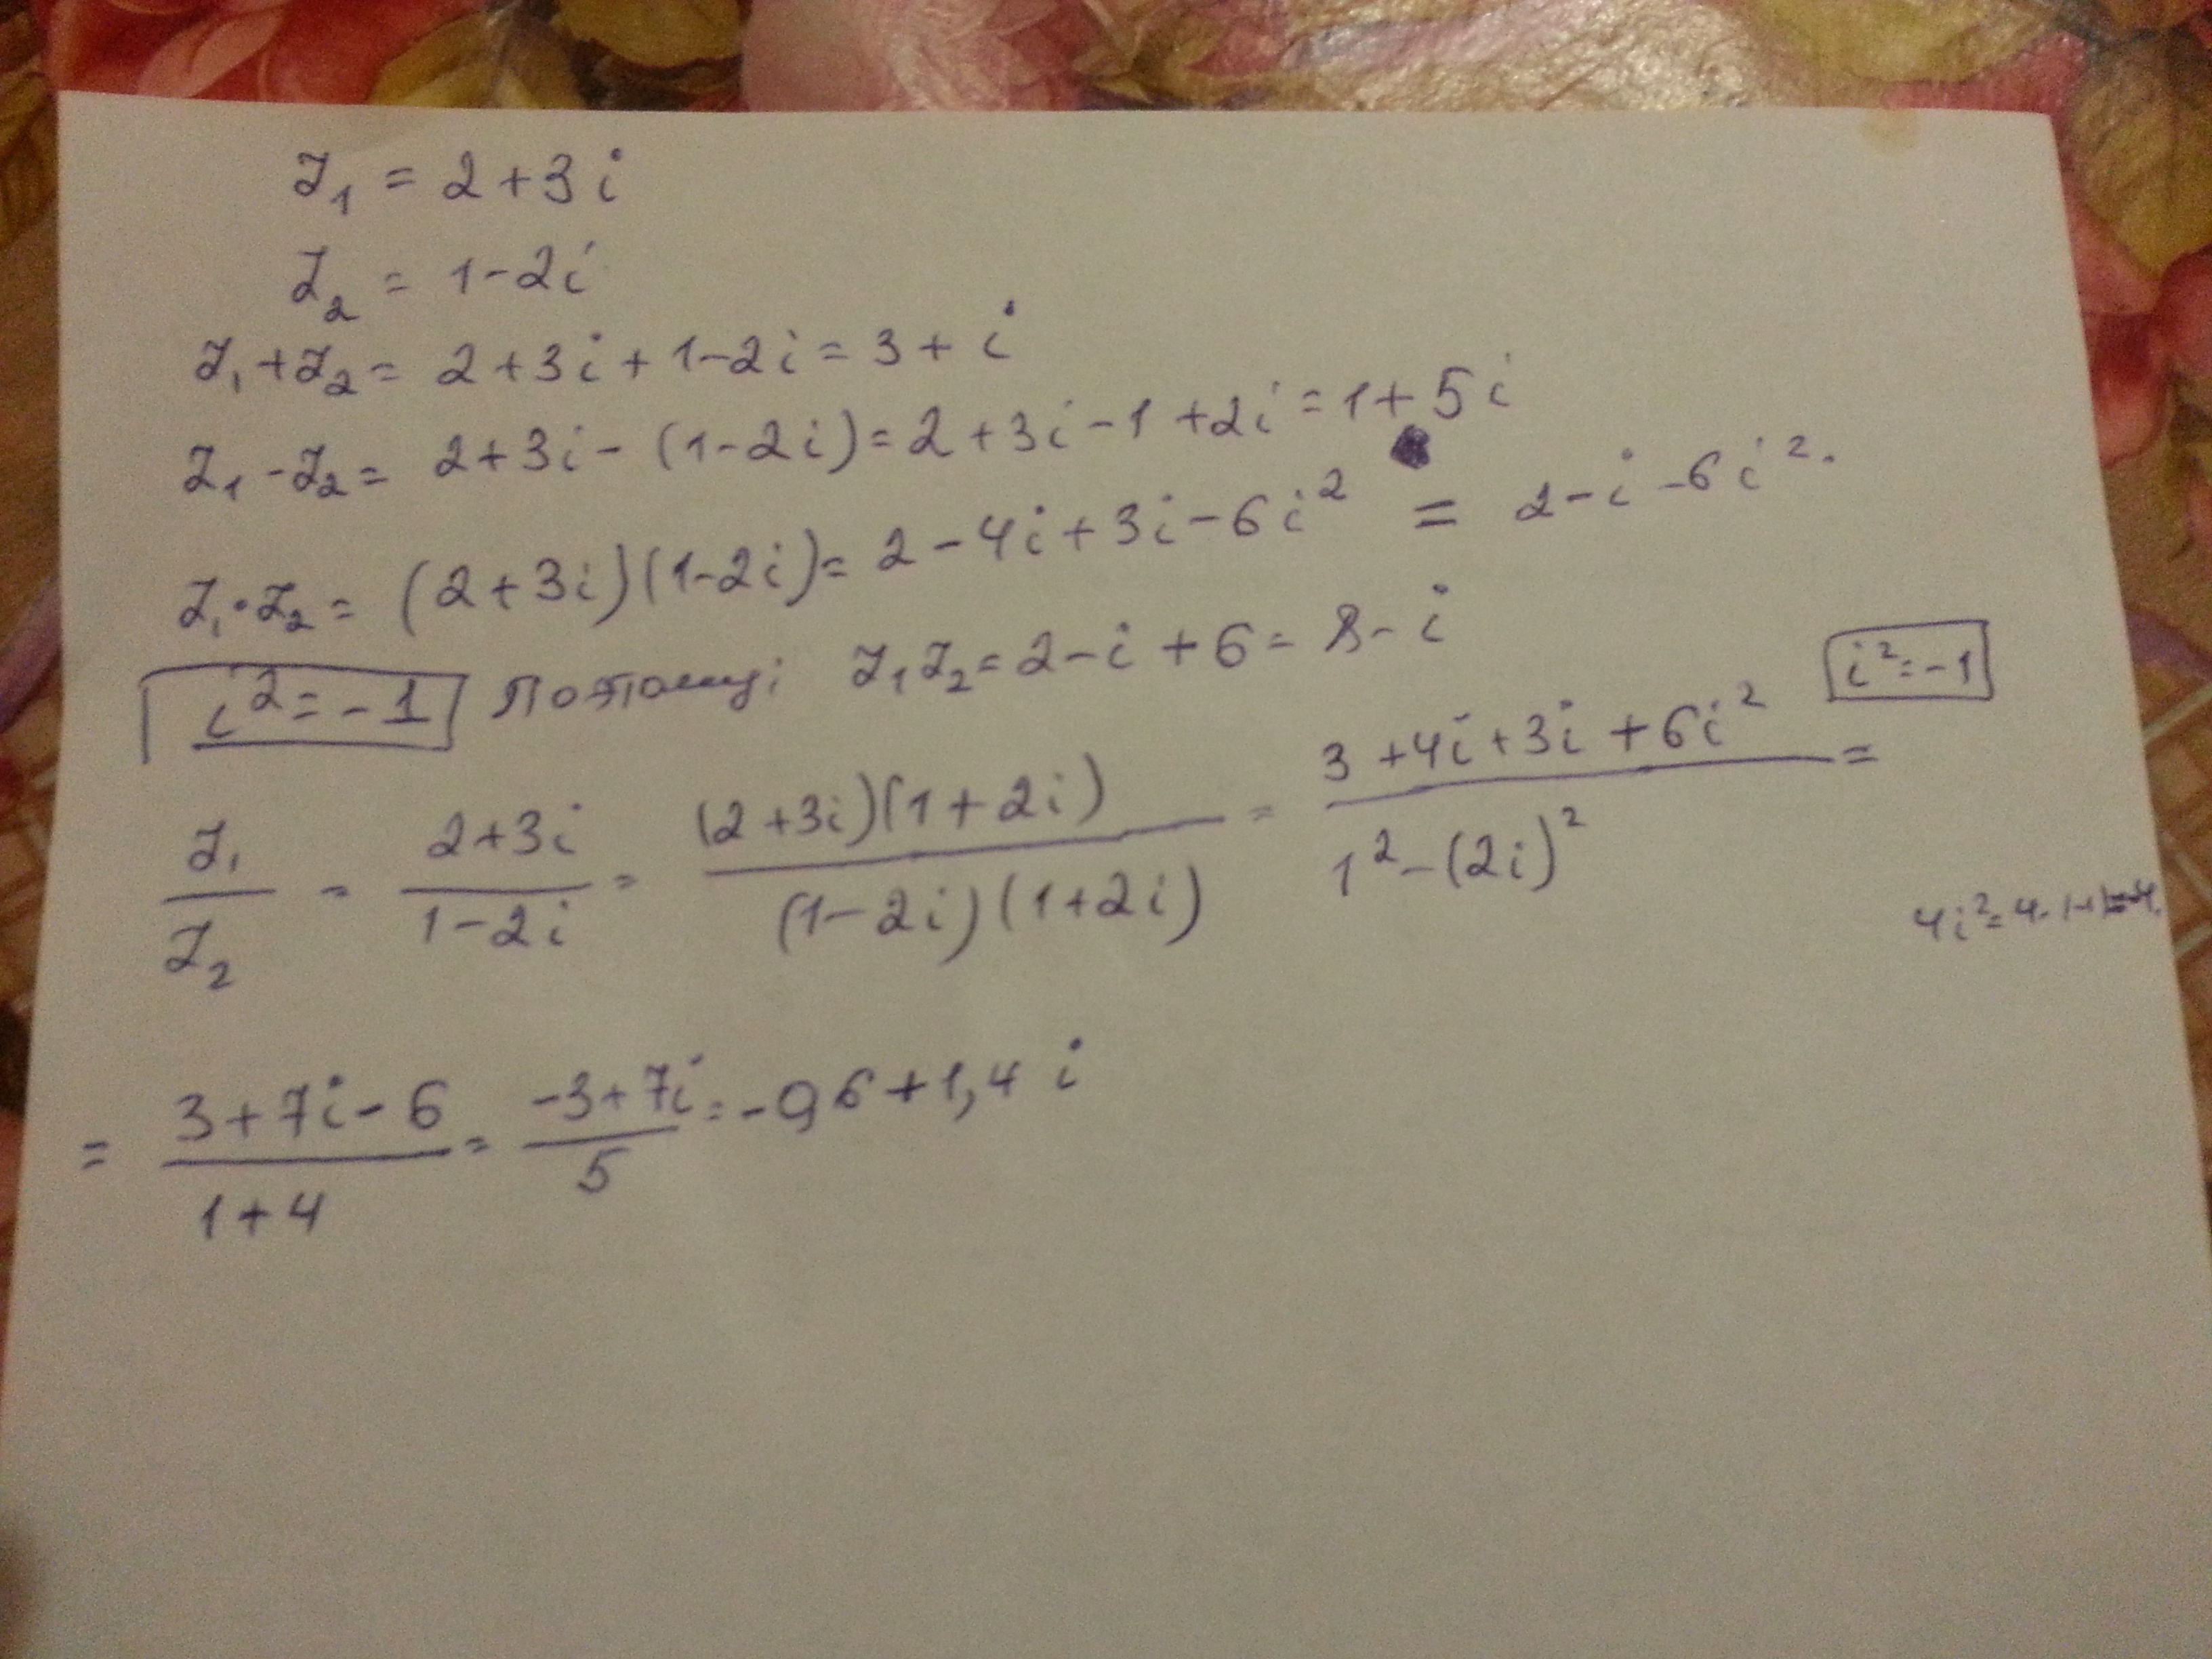 Z₁ = 2 + 3i
Z₂ = 1 - 2i
Z₁ + Z₂ = 2 + 3i + 1 - 2i = 3 + i
Z₁ - Z₂ = 2 + 3i - (1 - 2i) = 2 + 3i - 1 + 2i = 1 + 5i
Z₁ · Z₂ = (2 + 3i)(1 - 2i) = 2 - 4i + 3i - 6i² = 2 - i - 6i².
i² = -1 Поэтому: Z₁Z₂ = 2 - i + 6 = 8 - i
i² = -1
Z₁/Z₂ = (2 + 3i)/(1 - 2i) = ((2 + 3i)(1 + 2i))/((1 - 2i)(1 + 2i)) = (3 + 4i + 3i + 6i²)/(1² - (2i)²) =
4i² = 4·(-1) = -4.
= (3 + 7i - 6)/(1 + 4) = (-3 + 7i)/5 = -0,6 + 1,4 i